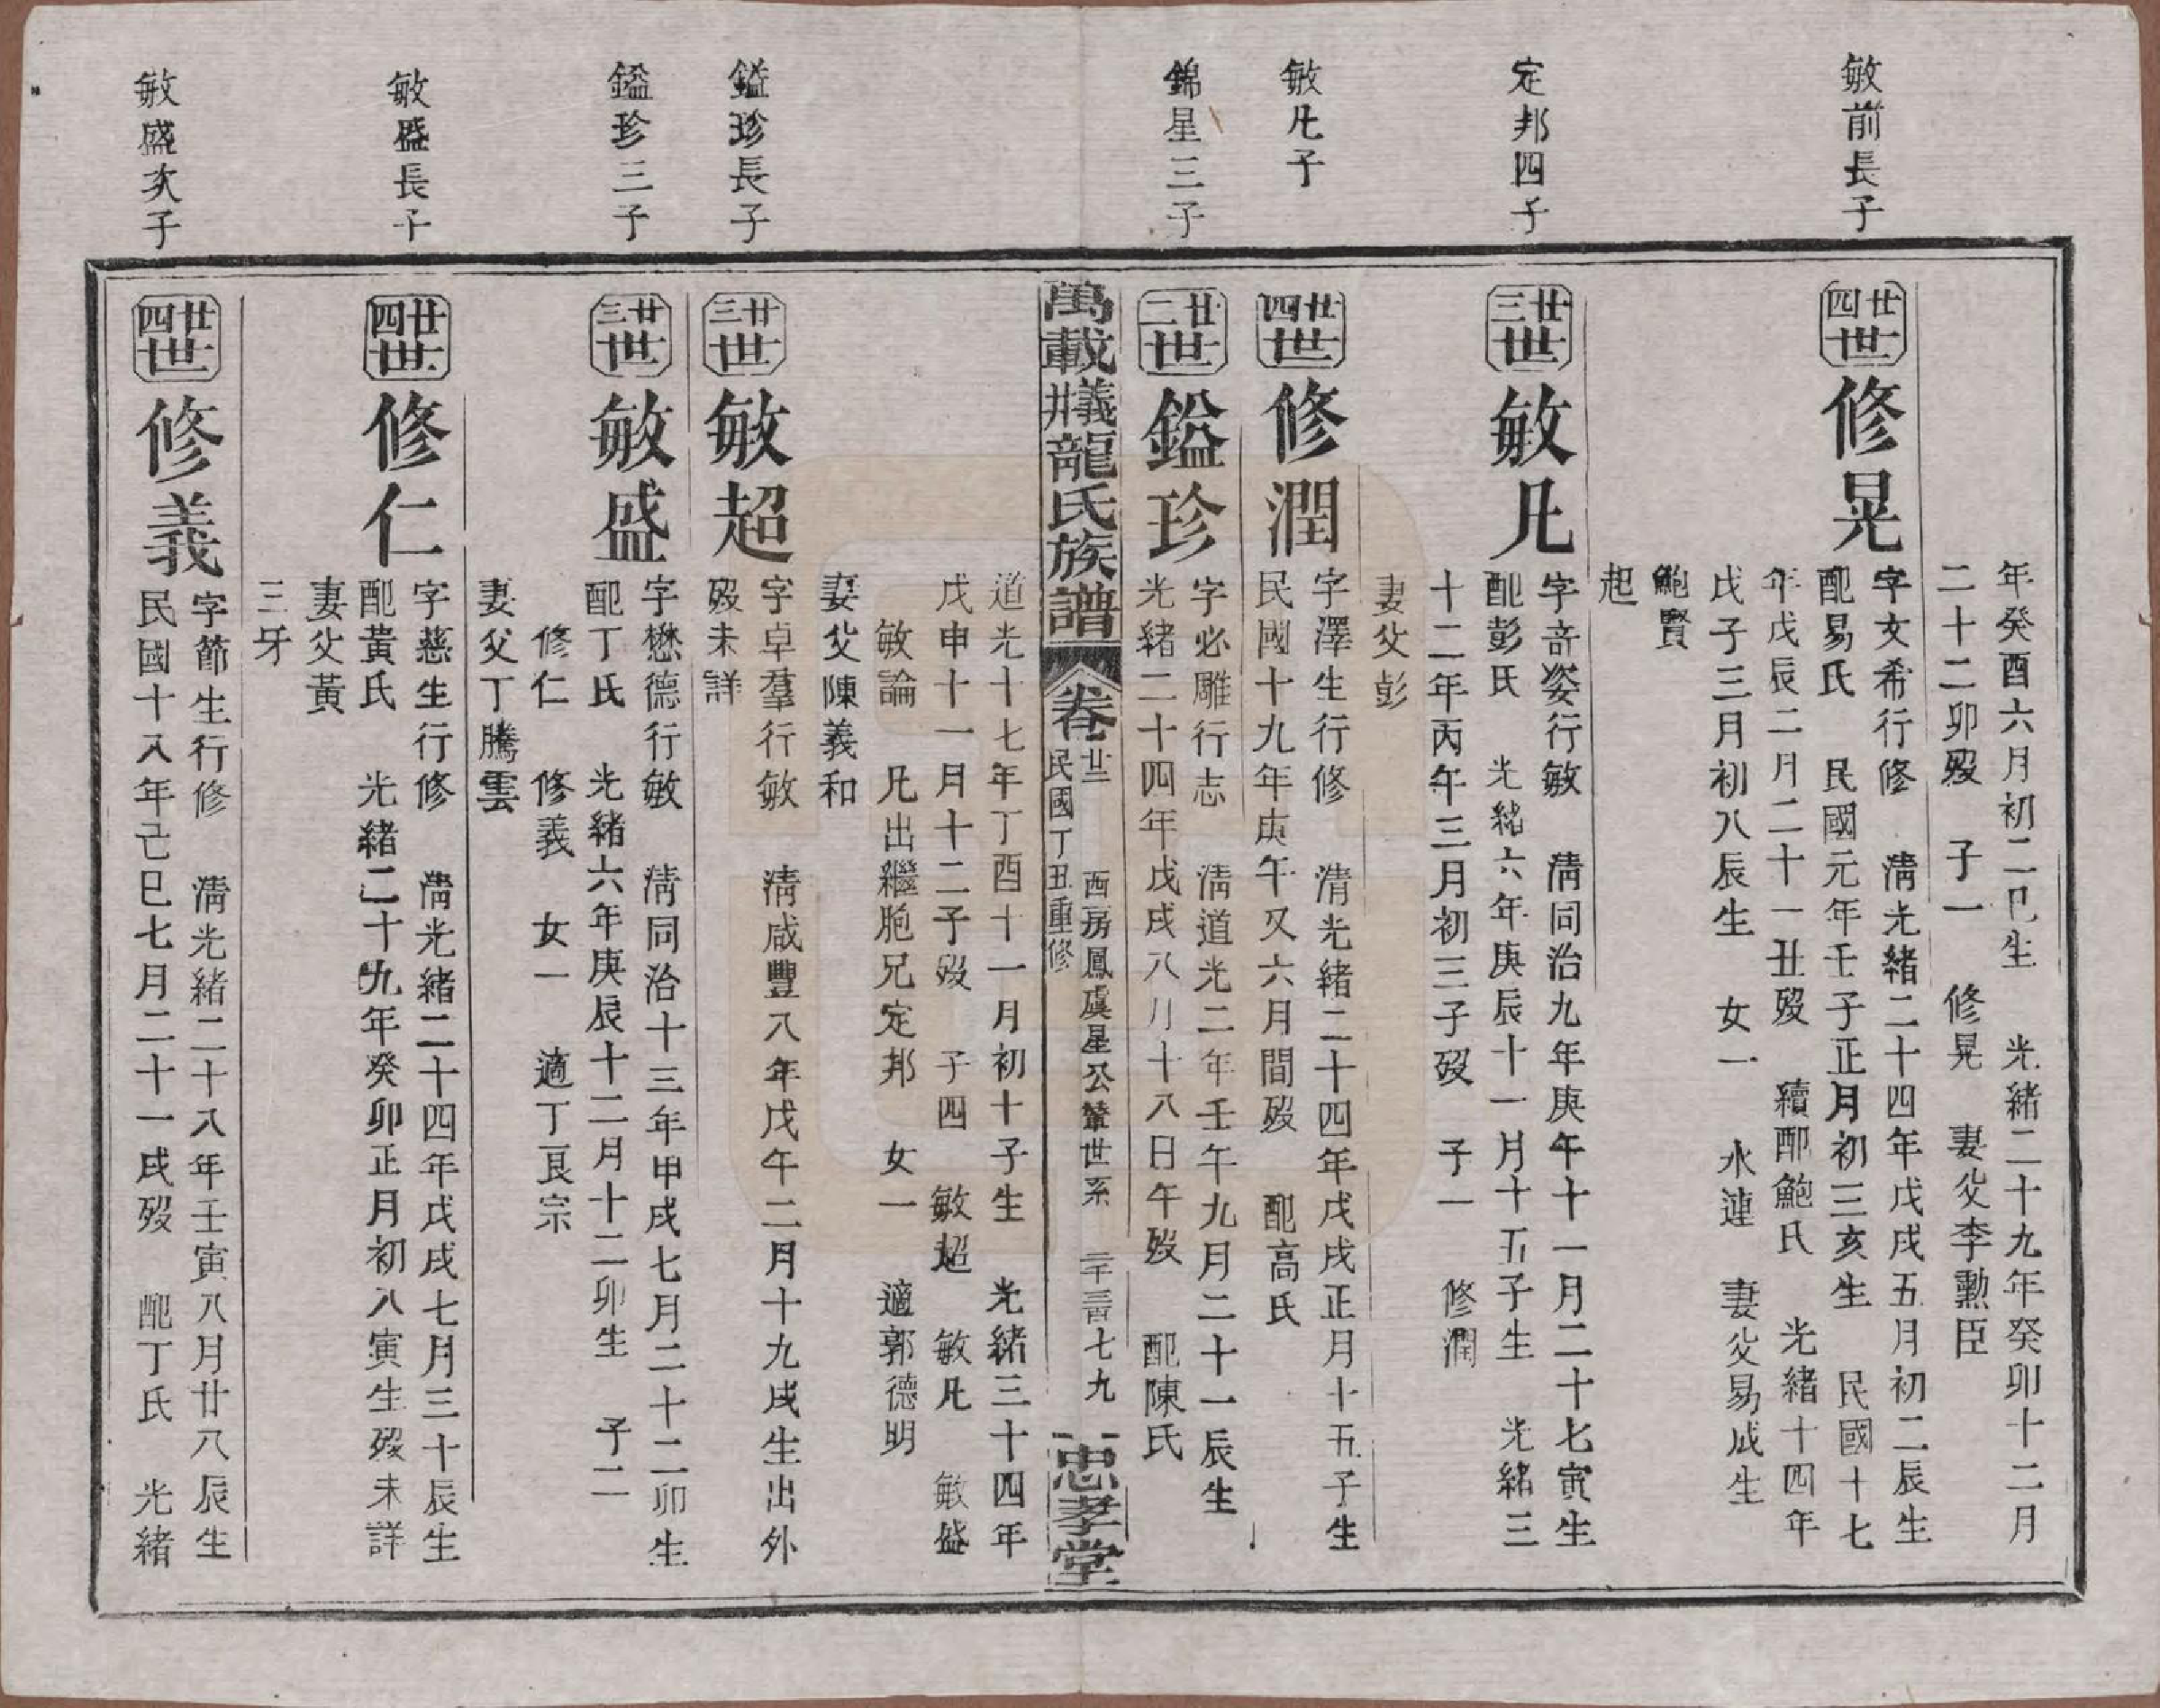 年癸酉六月初二巳生　光緒二十九年癸卯十二月
二十二卯歿　子一　修晃　妻父李勲臣
敏前長子
廿四世
修晃
字文希行修　淸光緒二十四年戊戌五月初二辰生
配易氏　民國元年壬子正月初三亥生　民國十七
年戊辰二月二十一丑歿　續配鮑氏　光緒十四年
戊子三月初八辰生　女一　水連　妻父易成生
鮑賢
起
定邦四子
廿三世
敏凡
字奇姿行敏　淸同治九年庚午十一月二十七寅生
配彭氏　光緒六年庚辰十一月十五子生　光緒三
十二年丙午三月初三子歿　子一　修潤
妻父彭
敏凡子
廿四世
修潤
字澤生行修　淸光緒二十四年戊戌正月十五子生
民國十九年庚午又六月間歿　配高氏
錦星三子
廿二世
鎰珍
字必雕行志　淸道光二年壬午九月二十一辰生
光緒二十四年戊戌八月十八日午歿　配陳氏
萬載井義龍氏族譜
卷廿二　民國丁丑重修
西房鳳虞星公輦世系　二千三百七九
忠孝堂
道光十七年丁酉十一月初十子生　光緒三十四年
戊申十一月十二子歿　子四　敏超　敏凡　敏盛
敏論　凡出繼胞兄定邦　女一　適郭德明
妻父陳義和
鎰珍長子
廿三世
敏超
字卓羣行敏　淸咸豐八年戊午二月十九戌生出外
歿未詳
鎰珍三子
廿三世
敏盛
字懋德行敏　淸同治十三年甲戌七月二十二卯生
配丁氏　光緒六年庚辰十二月十二卯生　子二
修仁　修義　女一　適丁艮宗
妻父丁騰雲
敏盛長子
廿四世
修仁
字慈生行修　淸光緒二十四年戊戌七月三十辰生
配黃氏　光緒二十九年癸卯正月初八寅生歿未詳
妻父黃
三牙
敏盛次子
廿四世
修義
字節生行修　淸光緒二十八年壬寅八月廿八辰生
民國十八年己巳七月二十一戌歿　配丁氏　光緒